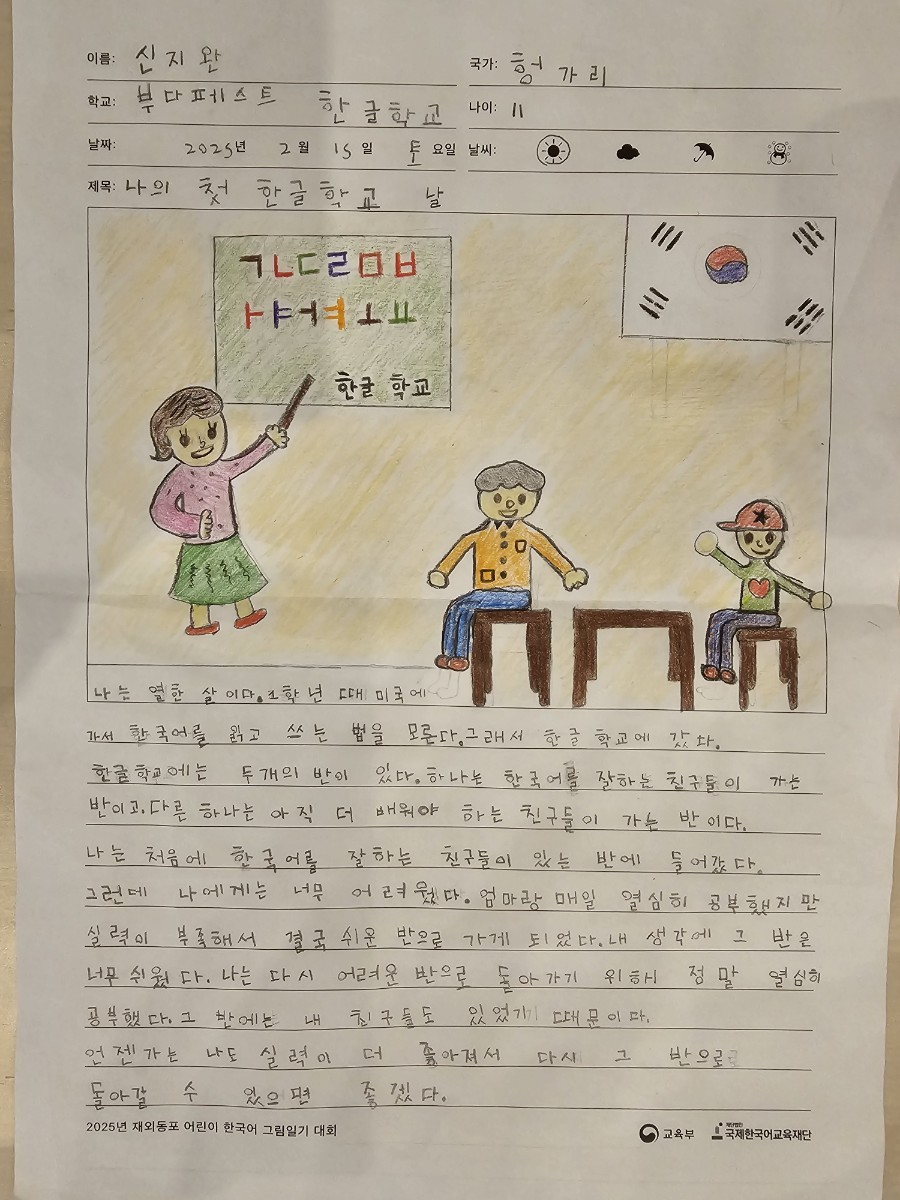 이름: 신지완
국가: 헝가리
학교: 부다페스트 한글학교
나이: 11
날짜: 2025년 2월 15일 토요일
날씨:
제목: 나의 첫 한글학교 날
ㄱㄴㄷㄹㅁㅂ
ㅏㅑㅓㅕㅗㅛ
한글 학교
나는 열한 살이다. 1학년 때 미국에
가서 한국어를 읽고 쓰는 법을 모른다. 그래서 한글 학교에 갔다.
한글학교에는 두개의 반이 있다. 하나는 한국어를 잘하는 친구들이 가는
반이고. 다른 하나는 아직 더 배워야 하는 친구들이 가는 반이다.
나는 처음에 한국어를 잘하는 친구들이 있는 반에 들어갔다.
그런데 나에게는 너무 어려웠다. 엄마랑 매일 열심히 공부했지만
실력이 부족해서 결국 쉬운 반으로 가게 되었다. 내 생각에 그 반은
너무 쉬웠다. 나는 다시 어려운 반으로 돌아가기 위해 정말 열심히
공부했다. 그 반에는 내 친구들도 있었기 때문이다.
언젠가는 나도 실력이 더 좋아져서 다시 그 반으로
돌아갈 수 있으면 좋겠다.
2025년 재외동포 어린이 한국어 그림일기 대회
교육부
재단법인
국제한국어교육재단